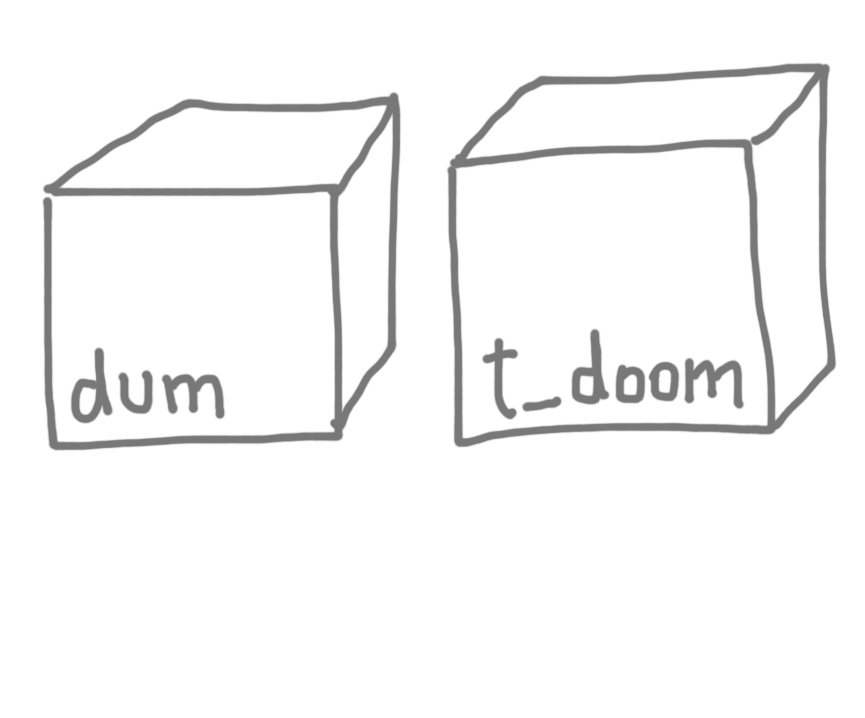 dum
t_doom